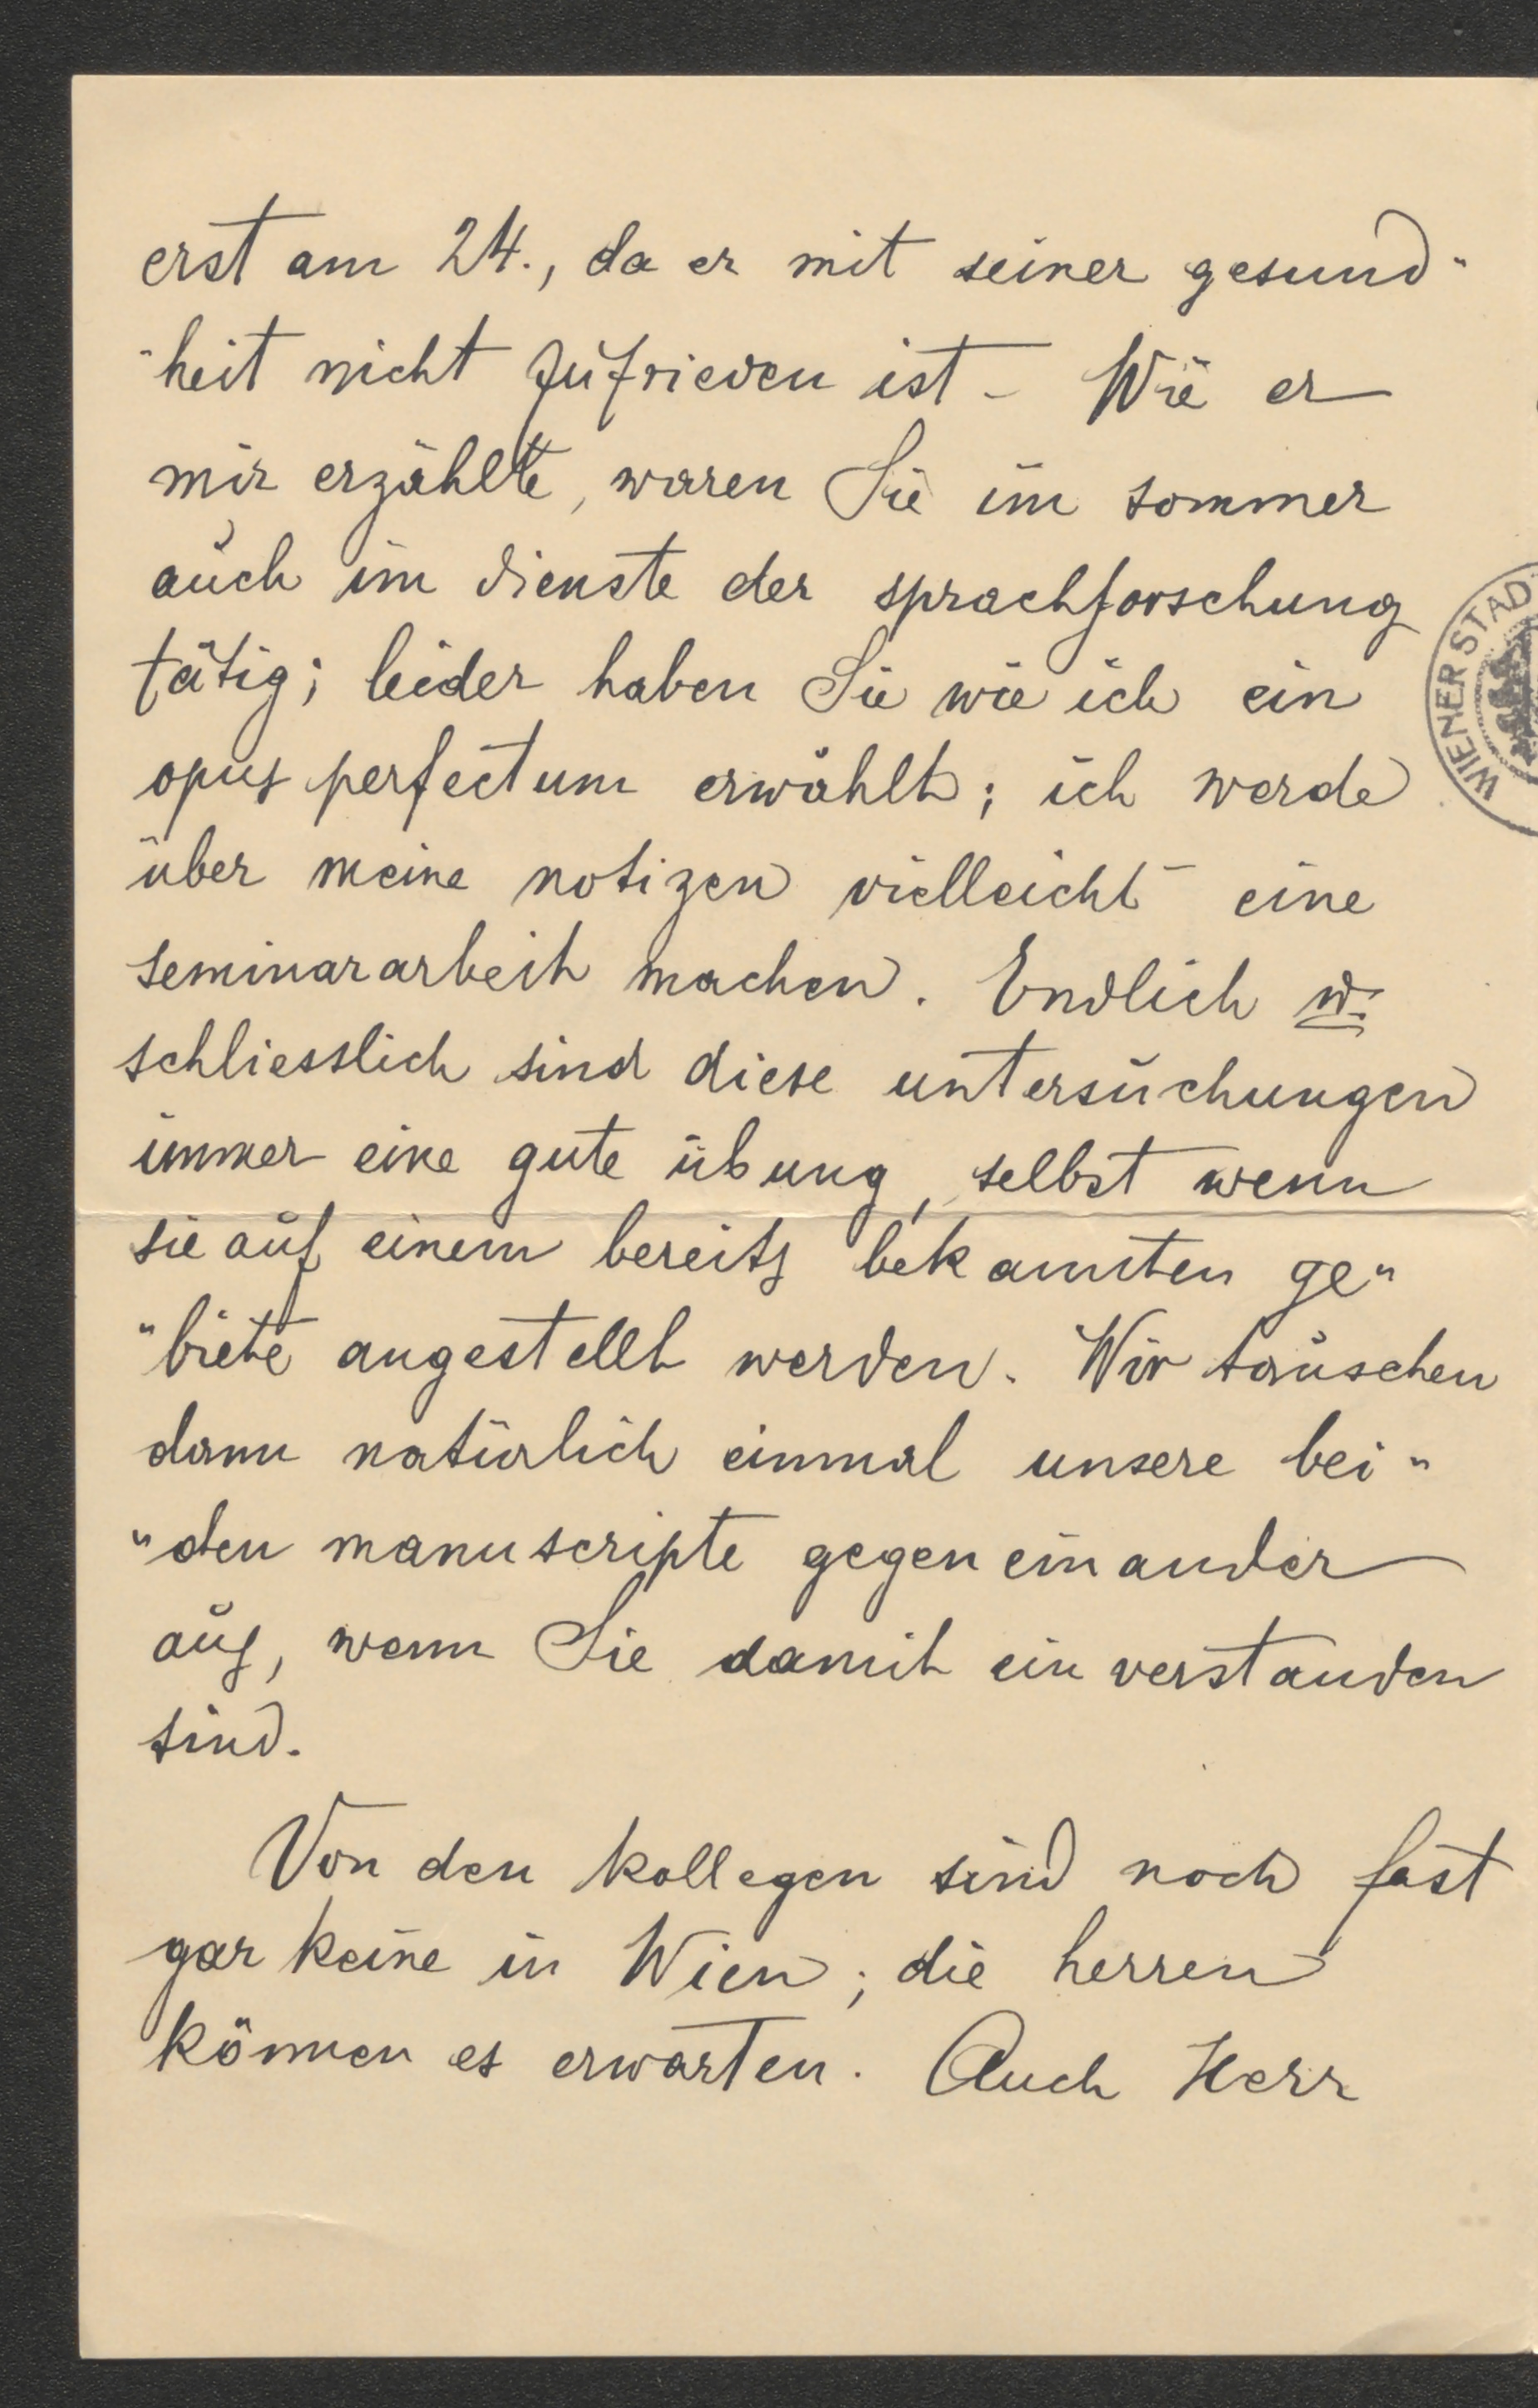 erst am 24., da er mit seiner gesund-
-heit nicht zufrieden ist. Wie er
mir erzählte, waren Sie im sommer
auch im dienste der sprachforschung
tätig; leider haben Sie wie ich ein
opus perfectum erwählt; ich werde
über meine notizen vielleicht eine
seminararbeit machen. Endlich u.
schliesslich sind diese untersuchungen
immer eine gute übung, selbst wenn
sie auf einem bereits bekannten ge"
"biete angestellt werden. Wir tauschen
dann natürlich einmal unsere bei"
"den manuscripte gegen einander
aus, wenn Sie damit einverstanden
sind.
Von den kollegen sind noch fast
gar keine in Wien; die herren
können es erwarten. Auch Herr
WIENER STAD